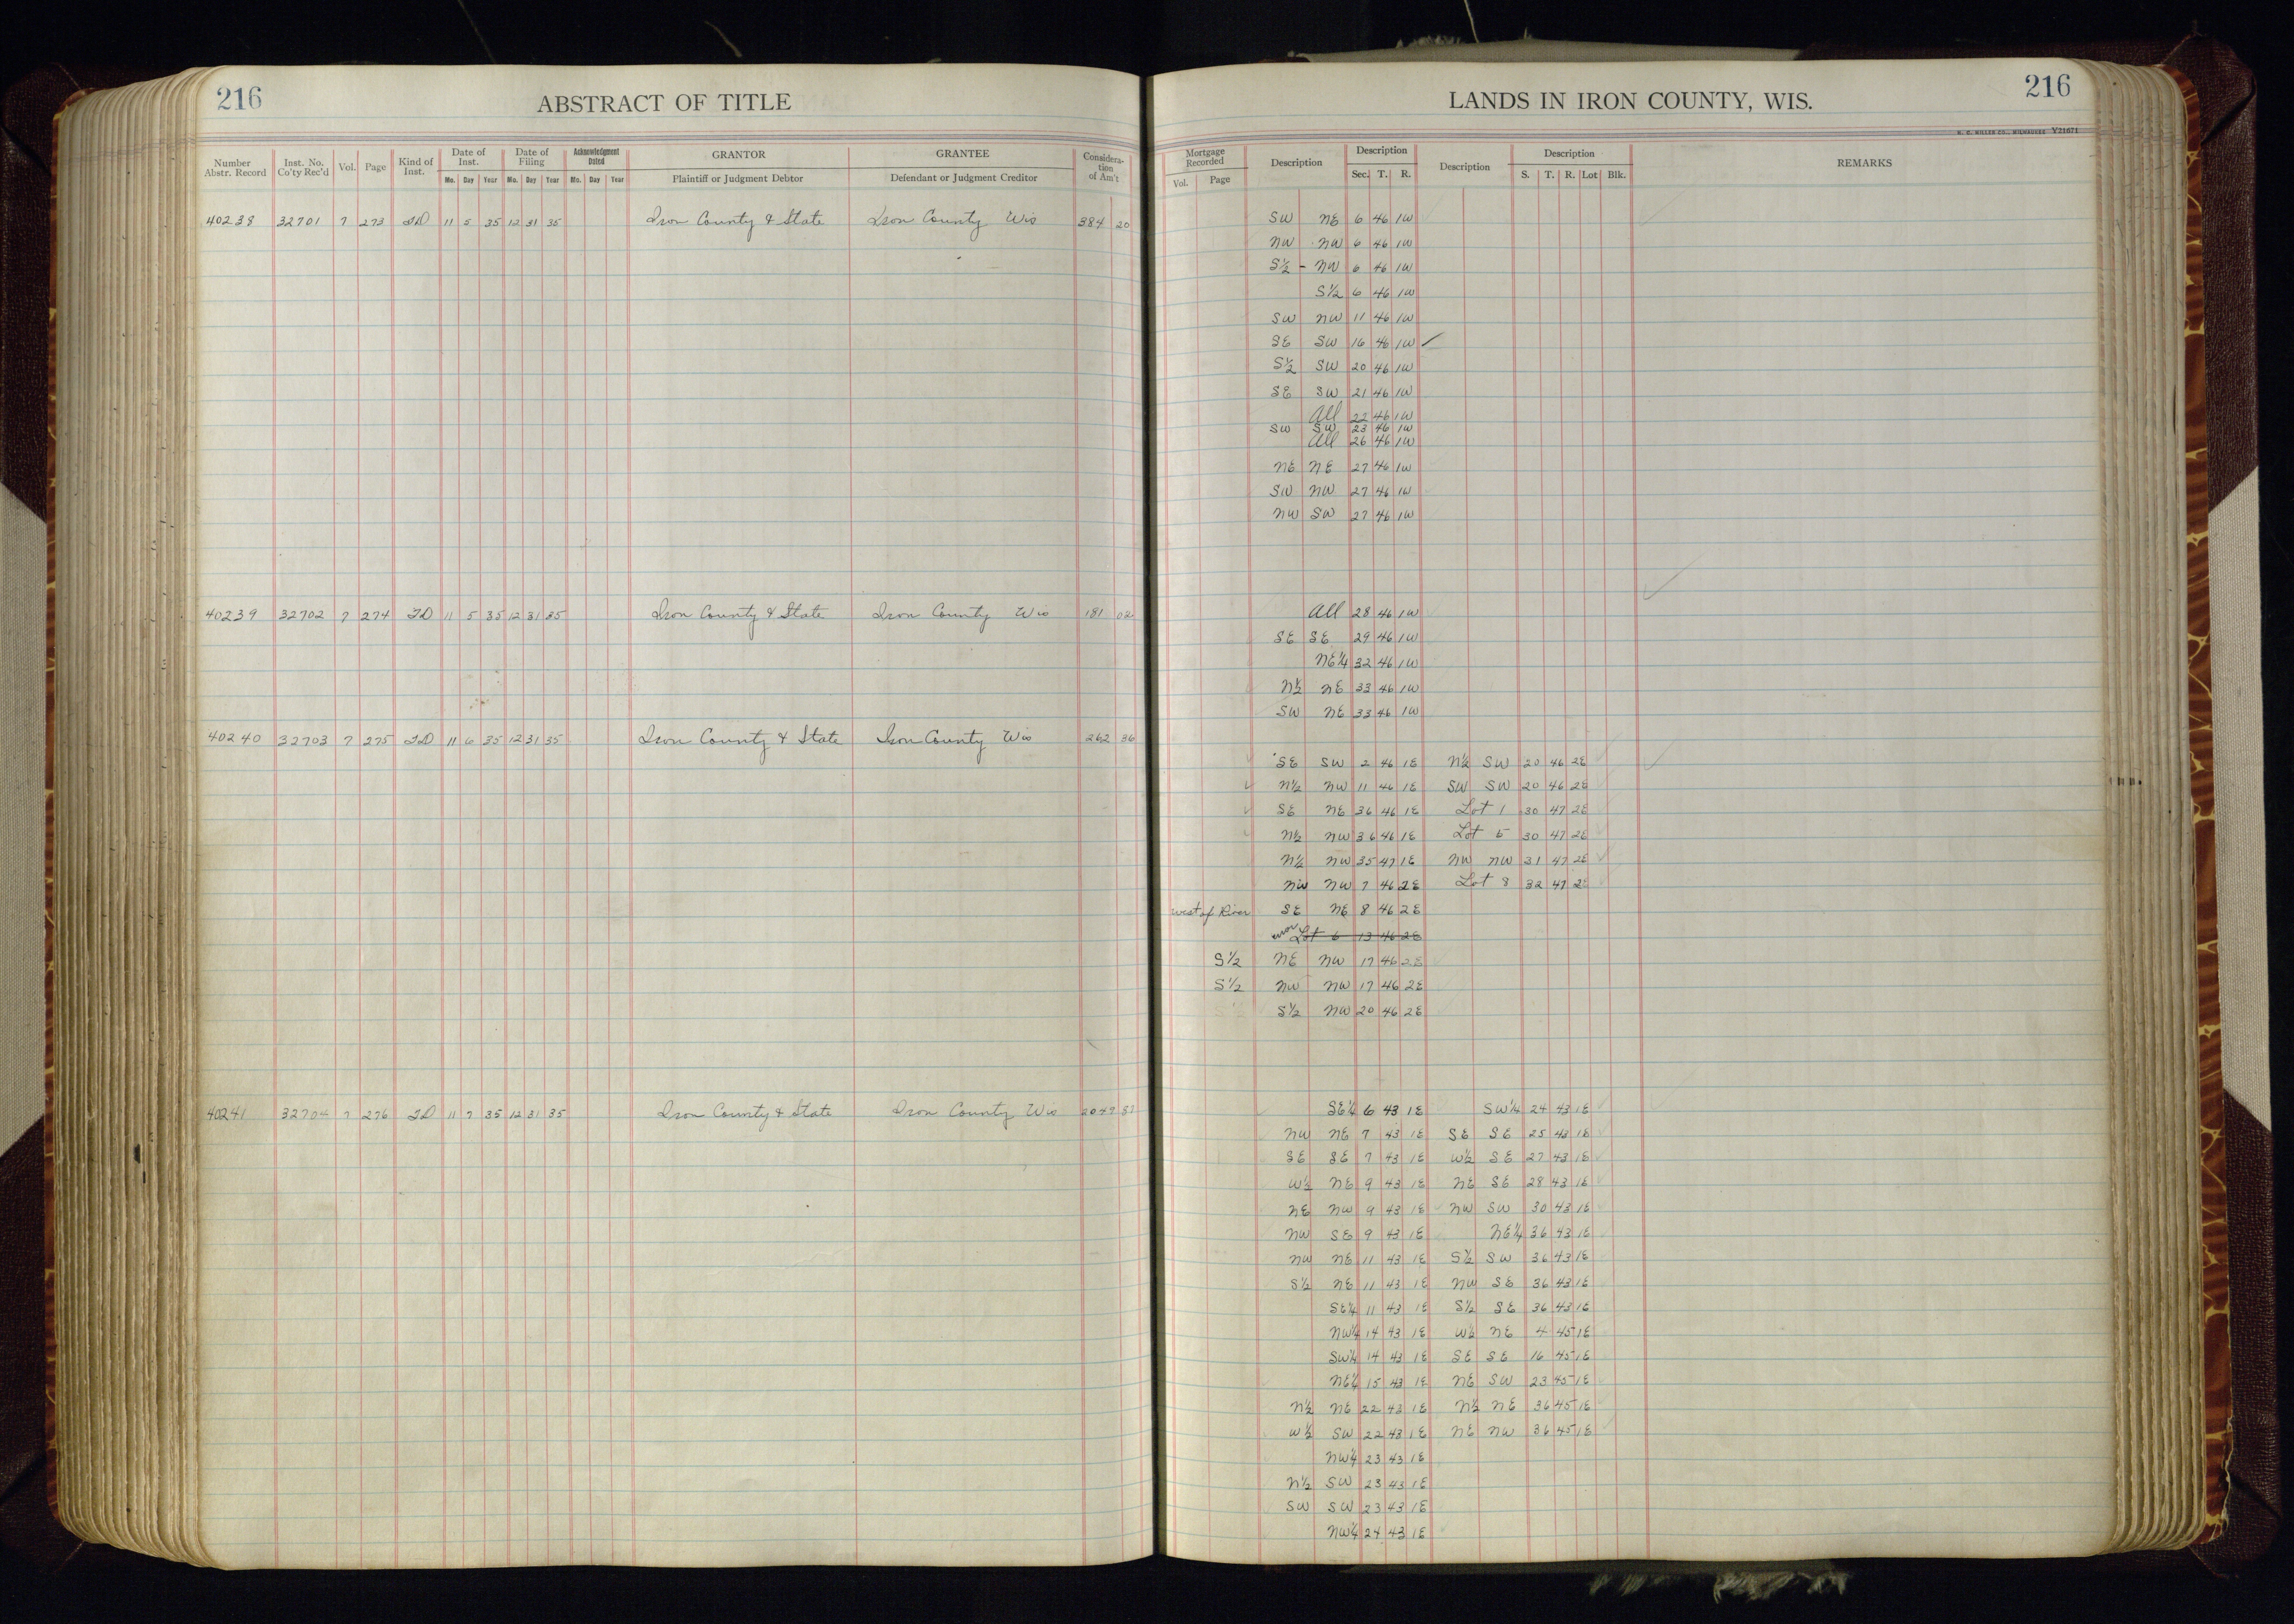 216
ABSTRACT OF TITLE
LANDS IN IRON COUNTY, WIS.
216
H. C. MILLER CO., MILWAUKEE Y21671
Number Abstr. Record | Inst. No. Co'ty Rec'd | Vol. | Page | Kind of Inst. | Date of Inst. Mo. Day Year | Date of Filing Mo. Day Year | Acknowledgment Dated Mo. Day Year | GRANTOR Plaintiff or Judgment Debtor | GRANTEE Defendant or Judgment Creditor | Consideration of Am't
Mortgage Recorded Vol. Page | Description | Description Sec. T. R. | Description | Description S. T. R. Lot Blk. | REMARKS
40238 32701 7 273 TD 11 5 35 12 31 35 Iron County & State Iron County Wis 384 20 SW NE 6 46 1W
NW NW 6 46 1W
S½ - NW 6 46 1W
S½ 6 46 1W
SW NW 11 46 1W
SE SW 16 46 1W ✓
S½ SW 20 46 1W
SE SW 21 46 1W
All 22 46 1W
SW SW 23 46 1W
All 26 46 1W
NE NE 27 46 1W
SW NW 27 46 1W
NW SW 27 46 1W
40239 32702 7 274 TD 11 5 35 12 31 35 Iron County & State Iron County Wis 181 02 All 28 46 1W
SE SE 29 46 1W
NE¼ 32 46 1W
N½ NE 33 46 1W
SW NE 33 46 1W
40240 32703 7 275 TD 11 6 35 12 31 35 Iron County & State Iron County Wis 262 36
SE SW 2 46 1E N½ SW 20 46 2E
N½ NW 11 46 1E SW SW 20 46 2E
SE NE 36 46 1E Lot 1 30 47 2E
N½ NW 36 46 1E Lot 5 30 47 2E
N½ NW 35 47 1E NW NW 31 47 2E
NW NW 7 46 2E Lot 8 32 47 2E
West of River SE NE 8 46 2E
error Lot 6 13 46 2E
S½ NE NW 17 46 2E
S½ NW NW 17 46 2E
S½ NW 20 46 2E
40241 32704 7 276 TD 11 7 35 12 31 35 Iron County & State Iron County Wis 2047 SE¼ 6 43 1E SW¼ 24 43 1E
NW NE 7 43 1E SE SE 25 43 1E
SE SE 7 43 1E W½ SE 27 43 1E
W½ NE 9 43 1E NE SE 28 43 1E
NE NW 9 43 1E NW SW 30 43 1E
NW SE 9 43 1E NE¼ 36 43 1E
NW NE 11 43 1E S½ SW 36 43 1E
S½ NE 11 43 1E NW SE 36 43 1E
SE¼ 11 43 1E S½ SE 36 43 1E
NW¼ 14 43 1E W½ NE 4 45 1E
SW¼ 14 43 1E SE SE 16 45 1E
NE¼ 15 43 1E NE SW 23 45 1E
N½ NE 22 43 1E N½ NE 36 45 1E
W½ SW 22 43 1E NE NW 36 45 1E
NW¼ 23 43 1E
N½ SW 23 43 1E
SW SW 23 43 1E
NW¼ 24 43 1E